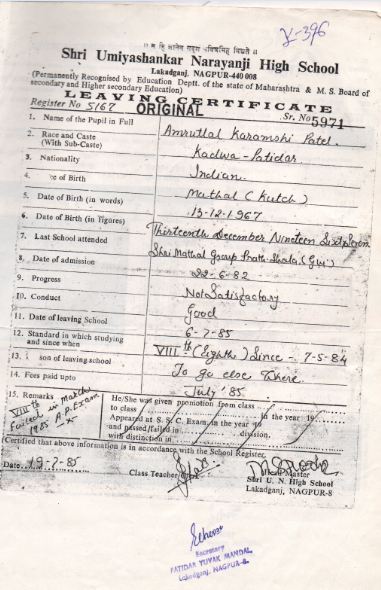 X-396
॥ न हि ज्ञानेन सदृशं पवित्रमिह विद्यते ॥
Shri Umiyashankar Narayanji High School
Lakadganj, NAGPUR-440 008
(Permanently Recognised by Education Deptt. of the state of Maharashtra & M. S. Board of
secondary and Higher secondary Education)
LEAVING CERTIFICATE
Register No 5167 ORIGINAL Sr. No 5971
1. Name of the Pupil in Full Amrutlal Karamshi Patel.
2. Race and Caste (With Sub-Caste) Kadwa-Patidar
3. Nationality Indian
4. ce of Birth Mathal (Kutch)
5. Date of Birth (in words) 13-12-1967
6. Date of Birth (in figures) Thirteenth December Nineteen Sixtyseven
7. Last School attended Shri Mathal Group Prath. Shala. (Guj)
8. Date of admission 22-6-82
9. Progress Not Satisfactory
10. Conduct Good
11. Date of leaving School 6-7-85
12. Standard in which studying and since when VIII th (Eighth) Since - 7-5-84
13. son of leaving school To go else where
14. Fees paid upto July '85
15. Remarks VIII th Failed in March 1985 A.P. Exam
He/She was given promotion from class
to class in the year 19
Appeared at S. S. C. Exam. in the year
and passed/failed in division.
with distinction in
Certified that above information is in accordance with the School Register.
Date 19-7-85 Class Teacher Head Master
Shri U. N. High School
Lakadganj, NAGPUR-8
Secretary
PATIDAR YUVAK MANDAL,
Lakadganj, NAGPUR-8.